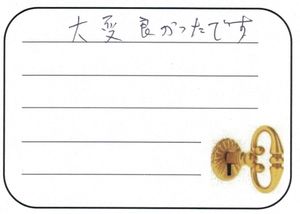 大変良かったです